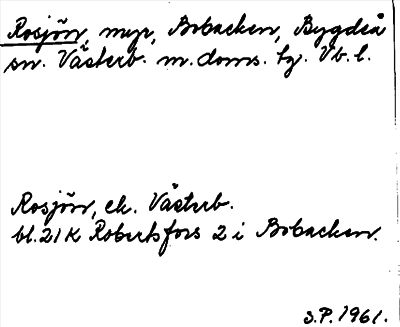 Rosjön, myr, Bobacken, Bygdeå
sn. Västerb. m. doms. tg. Vb. l.
Rosjön, ek. Västerb.
bl. 21K Robertsfors 2 i Bobacken.
S.P. 1961.